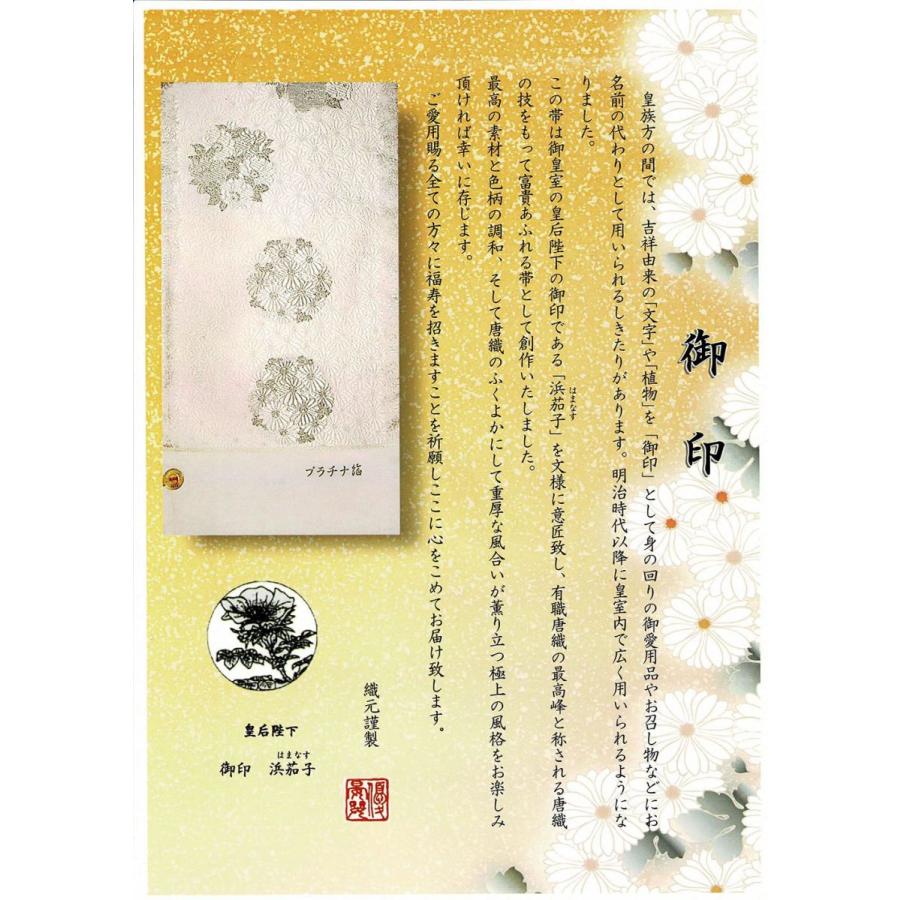 御印
皇族方の間では、吉祥由来の「文字」や「植物」を「御印」として身の回りの御愛用品やお召し物などにお
名前の代わりとして用いられるしきたりがあります。明治時代以降に皇室内で広く用いられるようにな
りました。
この帯は御皇室の皇后陛下の御印である「浜茄子」を文様に意匠致し、有職唐織の最高峰と称される唐織
はまなす
の技をもって富貴あふれる帯として創作いたしました。
最高の素材と色柄の調和、そして唐織のふくよかにして重厚な風合いが薫り立つ極上の風格をお楽しみ
頂ければ幸いに存じます。
ご愛用賜る全ての方々に福寿を招きますことを祈願しここに心をこめてお届け致します。
織元謹製
プラチナ箔
皇后陛下
はまなす
御印 浜茄子